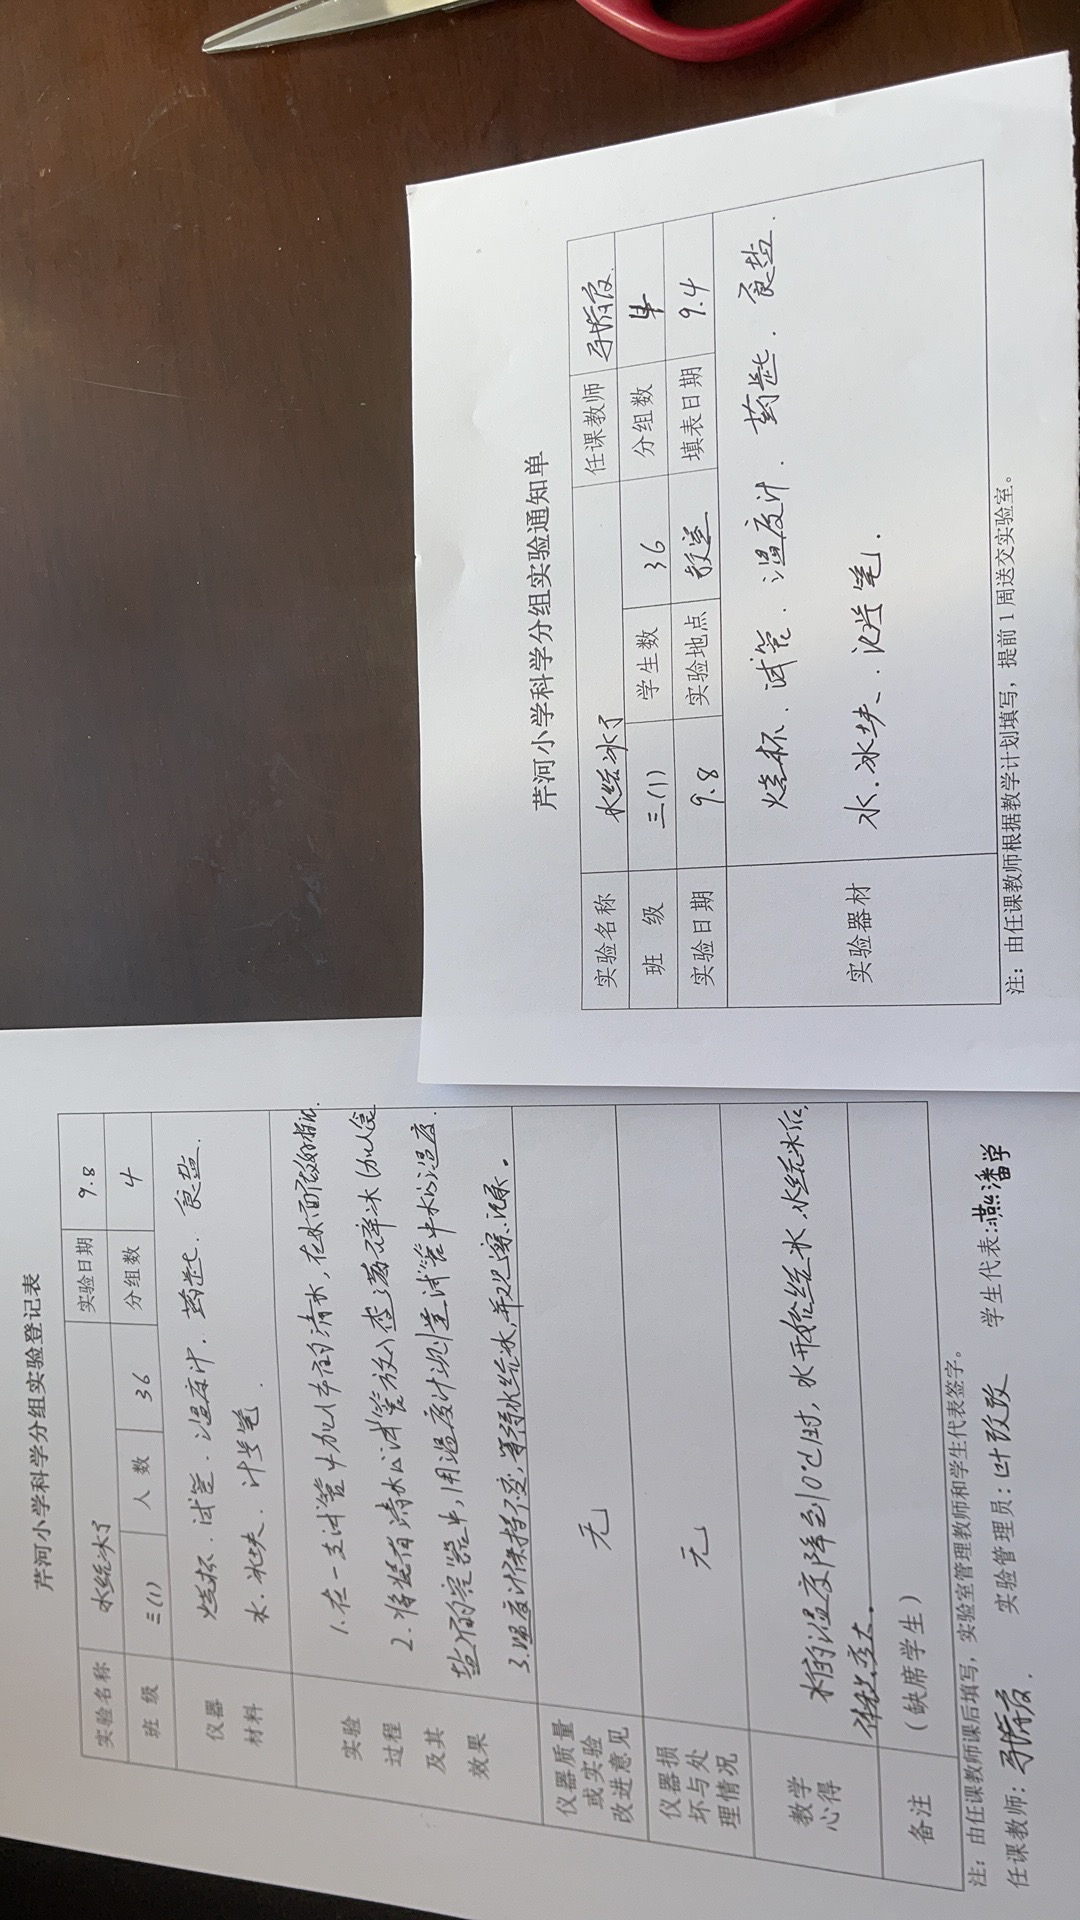 芹河小学科学分组实验登记表
实验名称 水结冰了 实验日期 9.8
班级 三(1) 人数 36 分组数 4
仪器材料 烧杯、试管、温度计、药匙、食盐.
水、冰块、记号笔.
实验过程及其效果
1.在一支试管中加入1/4的清水，在水面做好标记.
2.将装有清水的试管放入盛满碎冰(加入食
盐)的容器中,用温度计测量试管中水的温度.
3.温度计保持不变,等待水结冰,并观察、记录。
仪器质量或实验改进意见 无
仪器损坏与处理情况 无
教学心得 水的温度降到0℃时,水开始结冰.水结冰后,
体积变大.
备注 (缺席学生)
注：由任课教师课后填写，实验室管理教师和学生代表签字。
任课教师: 实验管理员: 叶改改 学生代表:
芹河小学科学分组实验通知单
实验名称 水结冰了 任课教师
班级 三(1) 学生数 36 分组数 4
实验日期 9.8 实验地点 教室 填表日期 9.4
实验器材 烧杯、试管、温度计、药匙、食盐.
水、冰块、记号笔.
注：由任课教师根据教学计划填写，提前1周送交实验室。